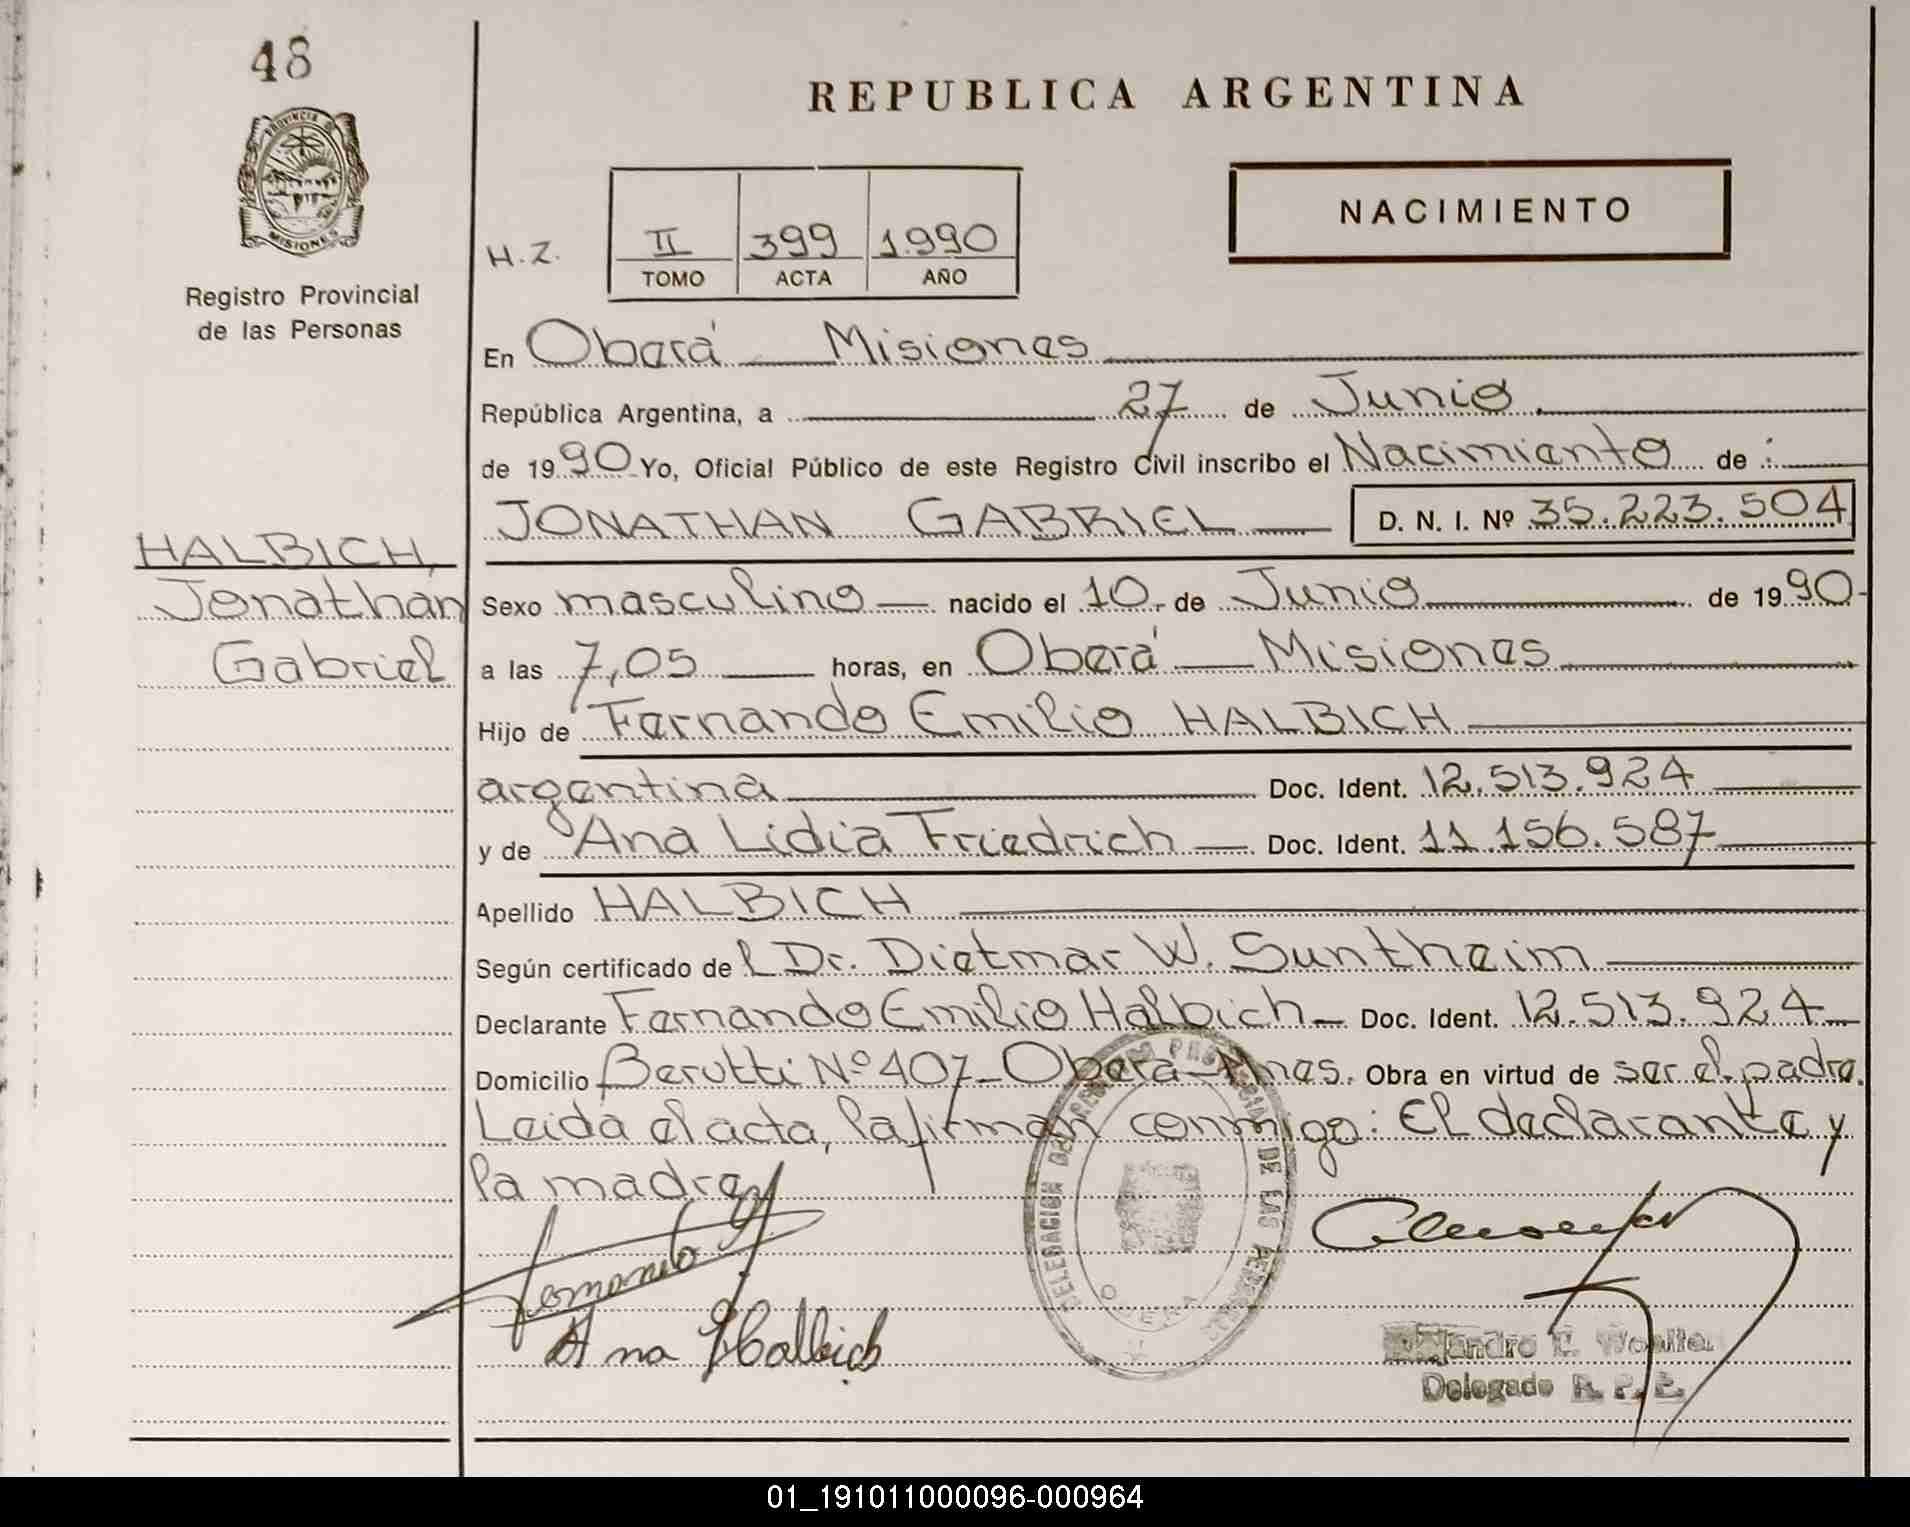 48
REPUBLICA ARGENTINA
PROVINCIA D
MISIONES
Registro Provincial
de las Personas
H.Z.
II 399 1.990
TOMO ACTA AÑO
NACIMIENTO
En Oberá Misiones
República Argentina, a 27 de Junio
de 1990 Yo, Oficial Público de este Registro Civil inscribo el Nacimiento de :
JONATHAN GABRIEL D. N. I. Nº 35.223.504
HALBICH,
Jonathan
Gabriel
Sexo masculino nacido el 10 de Junio de 1990
a las 7,05 horas, en Oberá Misiones
Hijo de Fernando Emilio HALBICH
argentina Doc. Ident. 12.513.924
y de Ana Lidia Friedrich Doc. Ident. 11.156.587
Apellido HALBICH
Según certificado del Dr. Dietmar W. Suntheim
Declarante Fernando Emilio Halbich Doc. Ident. 12.513.924
Domicilio Berutti Nº 407 - Oberá - Mnes. Obra en virtud de ser el padre.
Leida el acta, la firman conmigo: El declarante y
la madre
DELEGACION DE LAS
OBERA
Fernando
Ana Halbich
Delegado R. P. P.
01_191011000096-000964